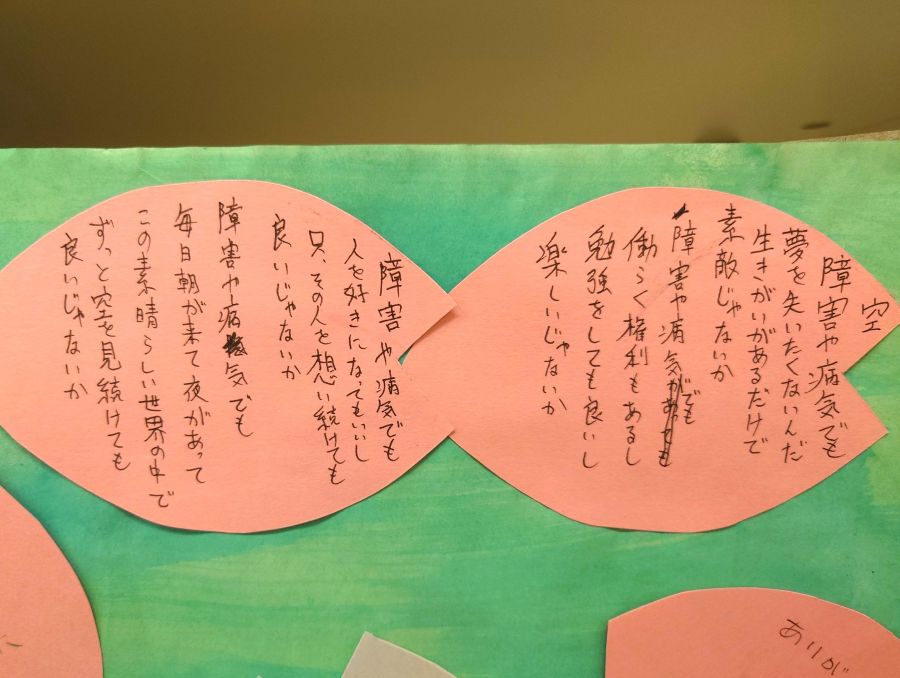 空
障害や病気でも
夢を失いたくないんだ
生きがいがあるだけで
素敵じゃないか
障害や病気でも
働らく権利もあるし
勉強をしても良いし
楽しいじゃないか
障害や病気でも
人を好きになってもいいし
只、その人を想い続けても
良いじゃないか
障害や病気でも
毎日朝が来て夜があって
この素晴らしい世界の中で
ずっと空を見続けても
良いじゃないか
ありが